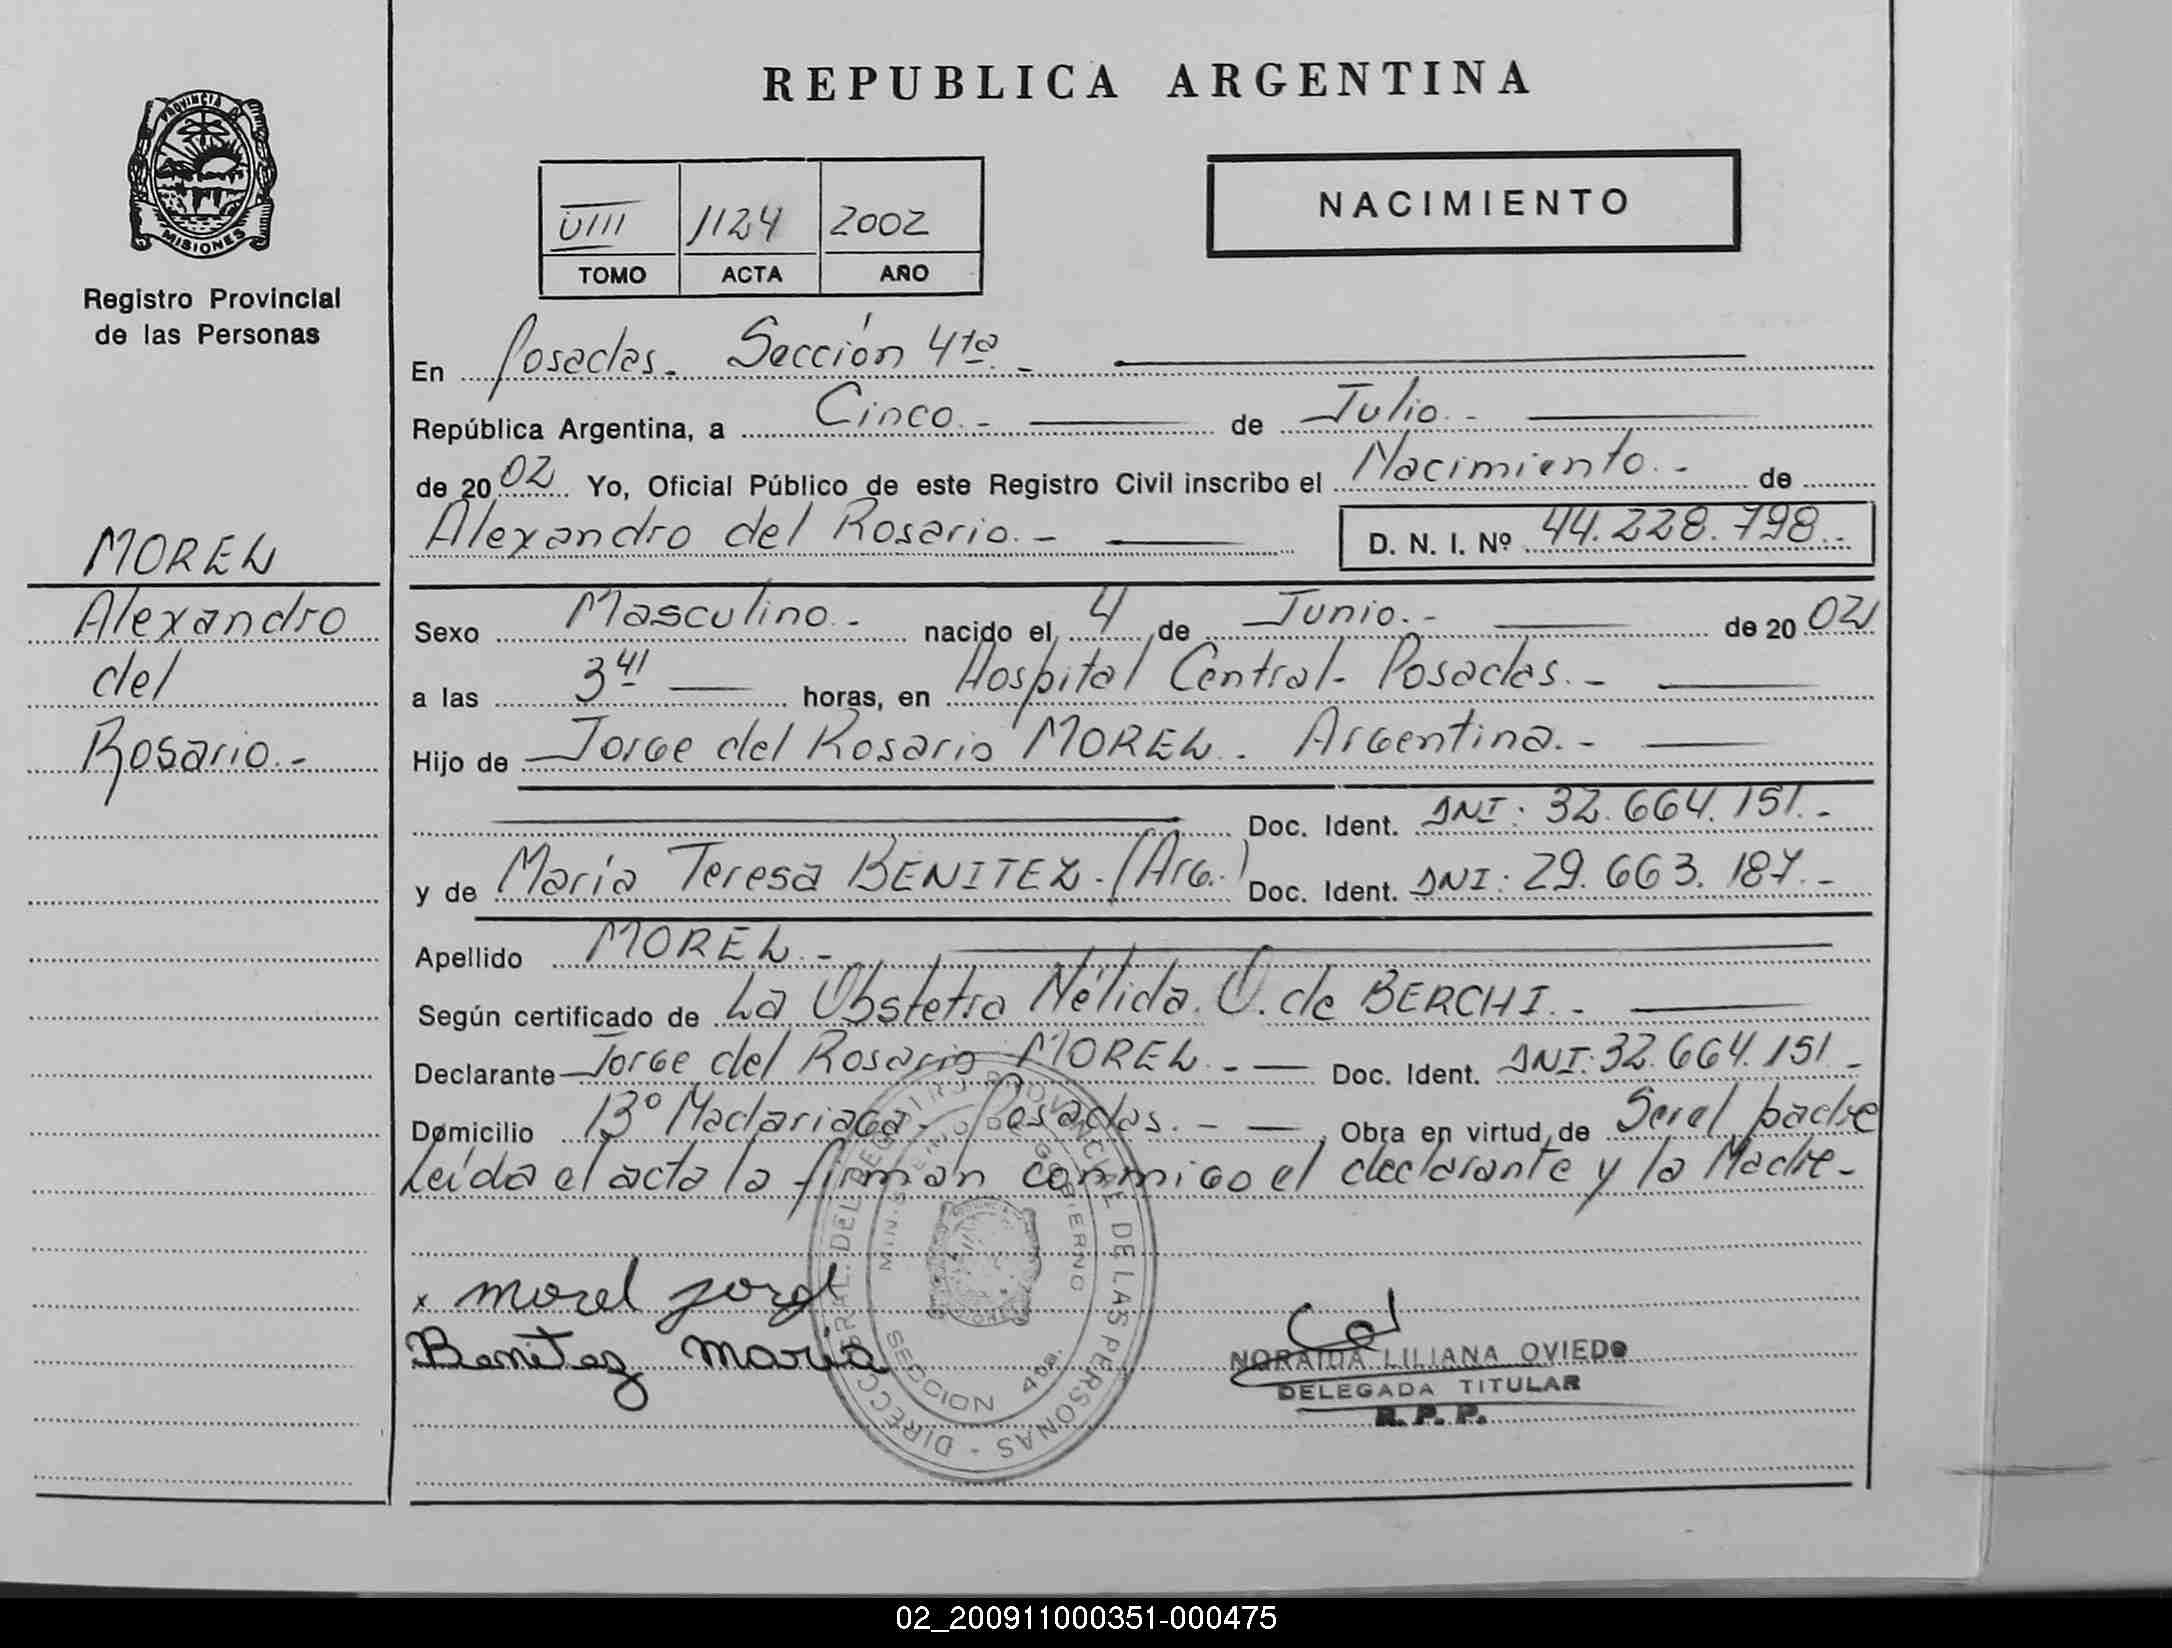 REPUBLICA ARGENTINA
PROVINCIA DE
MISIONES
Registro Provincial
de las Personas
VIII 1124 2002
TOMO ACTA AÑO
NACIMIENTO
En Posadas. Sección 4ta.-
República Argentina, a Cinco.- de Julio.-
de 2002 Yo, Oficial Público de este Registro Civil inscribo el Nacimiento.- de
Alexandro del Rosario.- D. N. I. Nº 44.228.798.-
MOREL
Alexandro
del
Rosario.-
Sexo Masculino.- nacido el 4 de Junio.- de 2002
a las 3 41 horas, en Hospital Central- Posadas.-
Hijo de Jorge del Rosario MOREL. Argentina.-
Doc. Ident. DNI: 32.664.151.-
y de María Teresa BENITEZ.(Arg.) Doc. Ident. DNI: 29.663.187.-
Apellido MOREL.-
Según certificado de La Obstetra Nélida. O. de BERCHI.-
Declarante Jorge del Rosario MOREL.- Doc. Ident. DNI: 32.664.151.-
Domicilio Bº Madariaga- Posadas.- Obra en virtud de Ser el padre
Leída el acta la firman conmigo el declarante y la Madre-
x Morel Jorge
Benitez Maria
DIRECC. GRAL. DEL REGISTRO PROVINCIAL DE LAS PERSONAS -
MINISTERIO DE GOBIERNO
SECCION 4ta.
NORAIDA LILIANA OVIEDO
DELEGADA TITULAR
R. P. P.
02_200911000351-000475